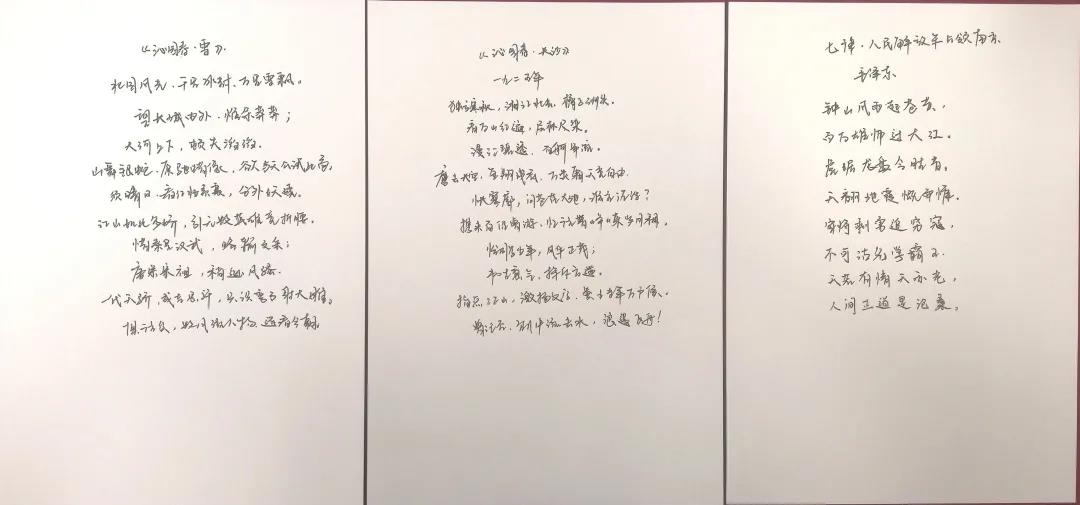 《沁园春·雪》
北国风光，千里冰封，万里雪飘。
望长城内外，惟余莽莽；
大河上下，顿失滔滔。
山舞银蛇，原驰蜡象，欲与天公试比高。
须晴日，看红装素裹，分外妖娆。
江山如此多娇，引无数英雄竞折腰。
惜秦皇汉武，略输文采；
唐宗宋祖，稍逊风骚。
一代天骄，成吉思汗，只识弯弓射大雕。
俱往矣，数风流人物，还看今朝
《沁园春·长沙》
一九二五年
独立寒秋，湘江北去，橘子洲头。
看万山红遍，层林尽染。
漫江碧透，百舸争流。
鹰击长空，鱼翔浅底，万类霜天竞自由。
怅寥廓，问苍茫大地，谁主沉浮？
携来百侣曾游，忆往昔峥嵘岁月稠
恰同学少年，风华正茂；
书生意气，挥斥方遒。
指点江山，激扬文字，粪土当年万户侯。
曾记否，到中流击水，浪遏飞舟！
七律·人民解放军占领南京
毛泽东
钟山风雨起苍黄，
百万雄师过大江。
虎踞龙盘今胜昔，
天翻地覆慨而慷。
宜将剩勇追穷寇，
不可沽名学霸王
天若有情天亦老，
人间正道是沧桑。